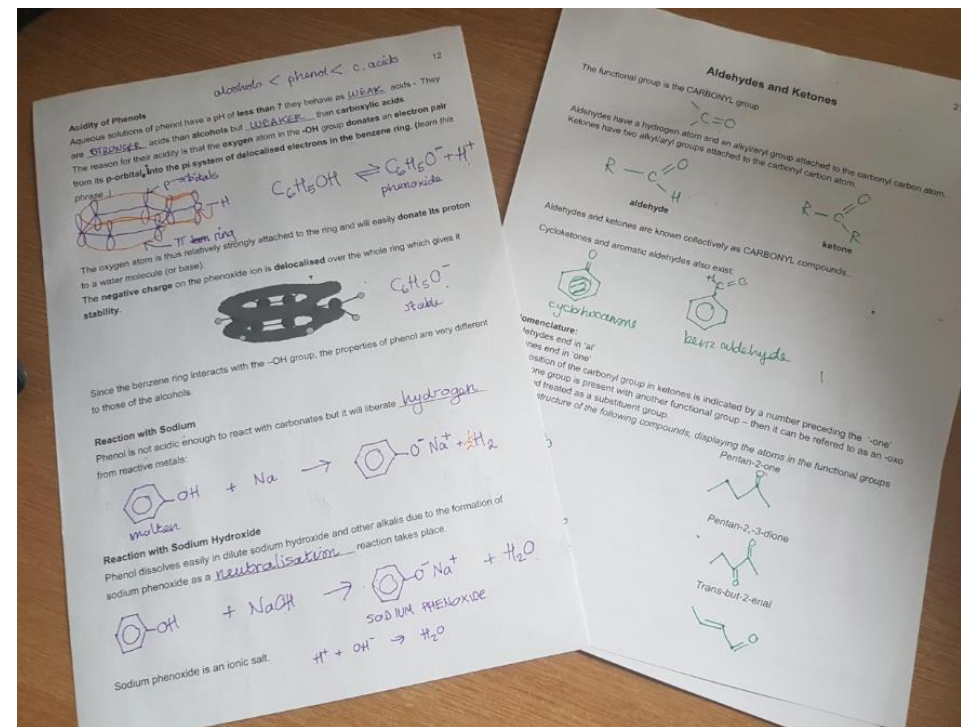 alcohols < phenol < c. acids
12
Acidity of Phenols
Aqueous solutions of phenol have a pH of less than 7 they behave as WEAK acids - They
are STRONGER acids than alcohols but WEAKER than carboxylic acids.
The reason for their acidity is that the oxygen atom in the -OH group donates an electron pair
from its p-orbital, into the pi system of delocalised electrons in the benzene ring. (learn this
phrase.)
p-orbitals
H
π ring
C₆H₅OH ⇌ C₆H₅O⁻ + H⁺
phenoxide
The oxygen atom is thus relatively strongly attached to the ring and will easily donate its proton
to a water molecule (or base)
The negative charge on the phenoxide ion is delocalised over the whole ring which gives it
stability.
C₆H₅O⁻
stable
Since the benzene ring interacts with the –OH group, the properties of phenol are very different
to those of the alcohols.
Reaction with Sodium
Phenol is not acidic enough to react with carbonates but it will liberate hydrogen
from reactive metals:
OH + Na → O⁻ Na⁺ + ½H₂
molten
Reaction with Sodium Hydroxide
Phenol dissolves easily in dilute sodium hydroxide and other alkalis due to the formation of
sodium phenoxide as a neutralisation reaction takes place.
OH + NaOH → O⁻ Na⁺ + H₂O
SODIUM PHENOXIDE
Sodium phenoxide is an ionic salt.
H⁺ + OH⁻ → H₂O
Aldehydes and Ketones
2
The functional group is the CARBONYL group
C=O
Aldehydes have a hydrogen atom and an alkyl/aryl group attached to the carbonyl carbon atom.
Ketones have two alkyl/aryl groups attached to the carbonyl carbon atom.
R – C O H
aldehyde
R – C O R
ketone
Aldehydes and ketones are known collectively as CARBONYL compounds..
Cycloketones and aromatic aldehydes also exist:
O
H C = O
benzaldehyde
omenclature:
ehydes end in 'al'
nes end in 'one'
osition of the carbonyl group in ketones is indicated by a number preceding the '-one'
one group is present with another functional group – then it can be refered to as an -oxo
d treated as a substituent group.
structure of the following compounds, displaying the atoms in the functional groups
Pentan-2-one
O
Pentan-2,-3-dione
O
O
Trans-but-2-enal
O